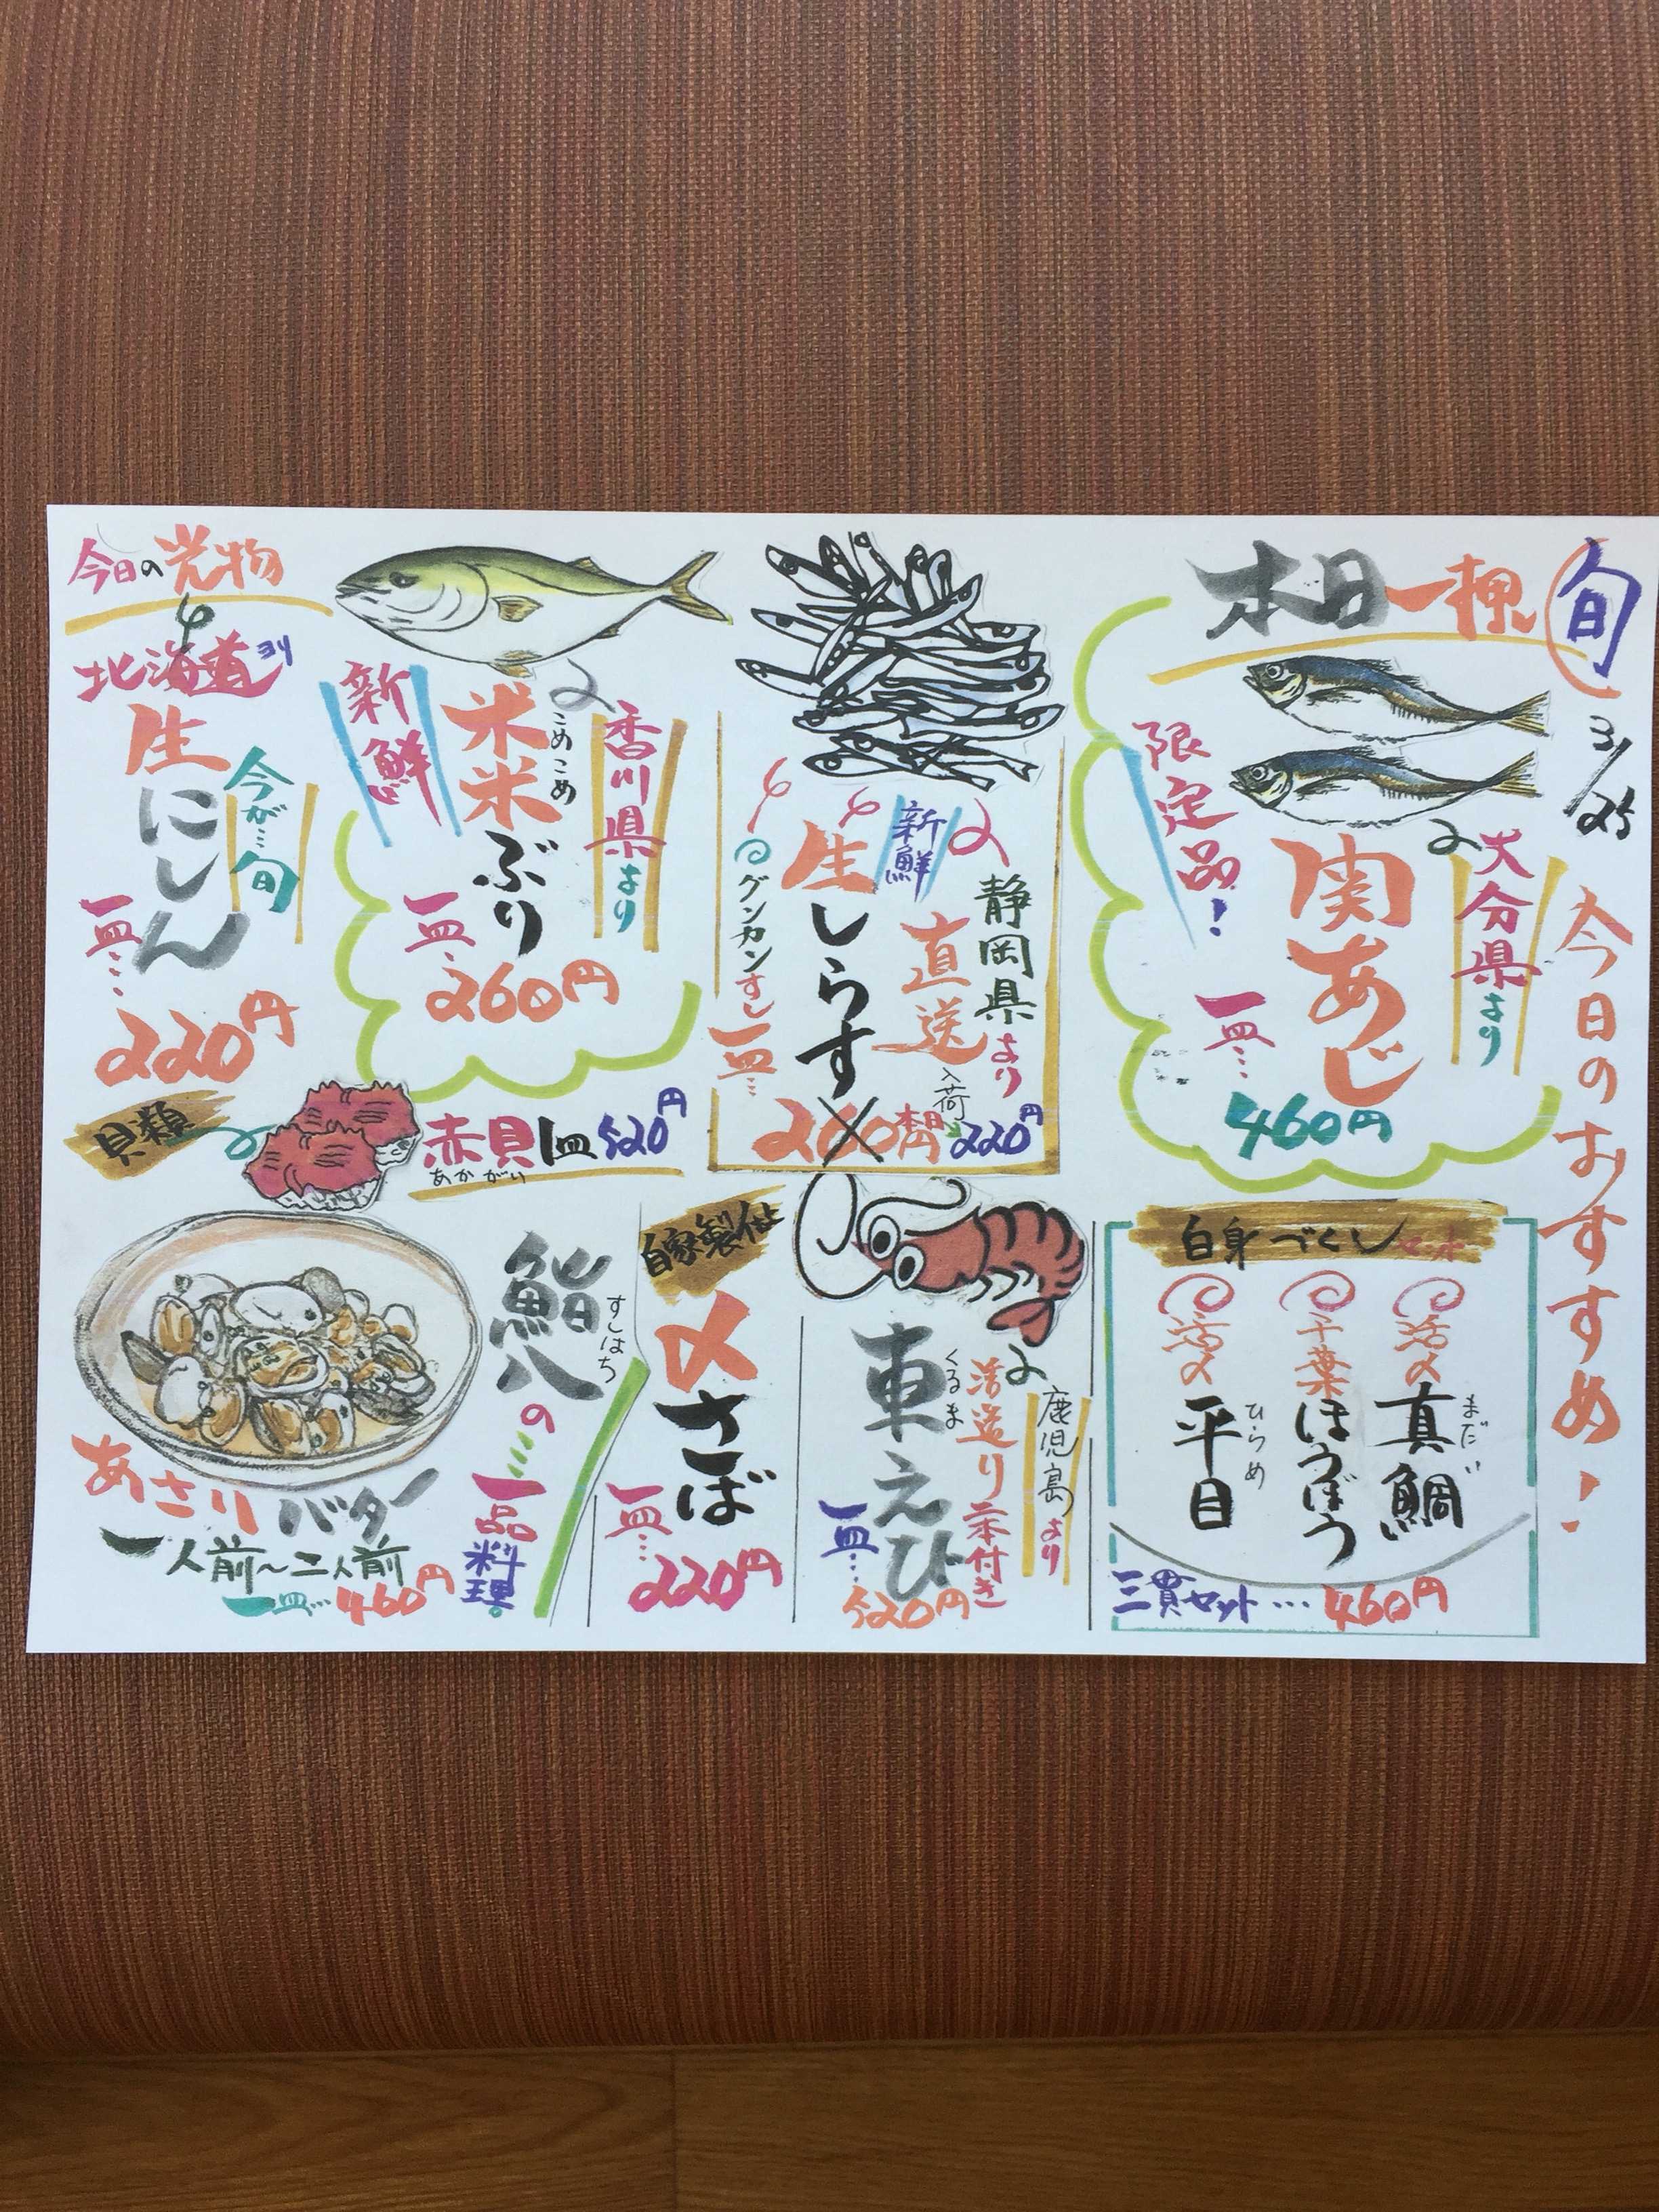 旬
3/25
今日のおすすめ!
本日一押し
大分県より
関あじ
限定品!
一皿…
460円
静岡県より
直送
入荷
新鮮
生しらす
グンカンすし
一皿…
260円
本日
220円
香川県より
こめこめ
米米ぶり
新鮮
一皿…
260円
今日の光物
北海道ヨリ
生にしん
今が…旬
一皿…
220円
貝類
赤貝1皿520円
あかがい
白身づくしセット
活〆
真鯛
まだい
千葉
ほうぼう
活〆
平目
ひらめ
三貫セット…460円
鹿児島より
活造り一本付き
車えび
くるま
一皿…
520円
自家製仕込
〆さば
一皿…
220円
鮨八
すしはち
の
一品料理。
あさりバター
一人前～二人前
一皿…460円